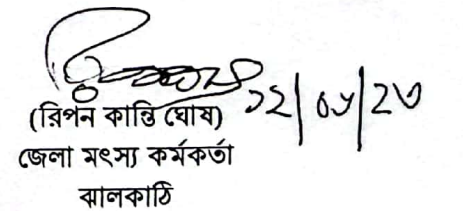 ১২/০৮/২৩
(রিপন কান্তি ঘোষ)
জেলা মৎস্য কর্মকর্তা
ঝালকাঠি